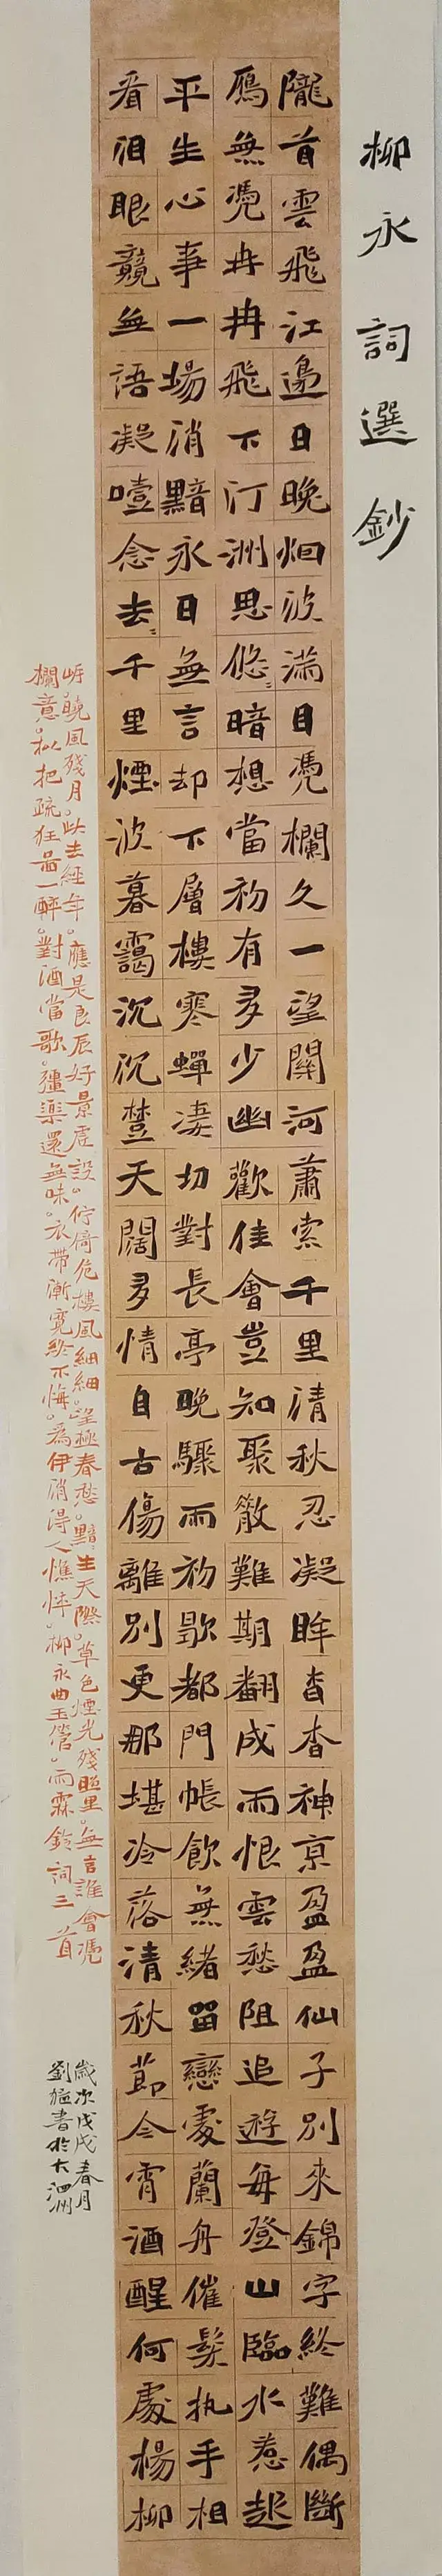 柳永詞選鈔
隴首雲飛江邊日晚烟波滿目憑欄久一望關河蕭索千里清秋忍凝眸杳杳神京盈盈仙子別來錦字終難偶斷
鴈無憑冉冉飛下汀洲思悠〻暗想當初有多少幽歡佳會豈知聚散難期翻成雨恨雲愁阻追遊每登山臨水惹起
平生心事一場消黯永日無言却下層樓寒蟬凄切對長亭晚驟雨初歇都門帳飲無緒留戀處蘭舟催髮执手相
看泪眼競無語凝噎念去〻千里煙波暮靄沉沉楚天闊多情自古傷離別更那堪冷落清秋節今宵酒醒何處楊柳
岸曉風殘月。此去經年。應是良辰好景虛設。佇倚危樓風細細。望極春愁。黯〻生天際。草色煙光殘照里。無言誰會憑
欄意。擬把疏狂圖一醉。對酒當歌。彊樂還無味。衣帶漸寬終不悔。為伊消得人憔悴。柳永曲玉管。雨霖鈴詞三首
歲次戊戌春月
劉書於大泗洲